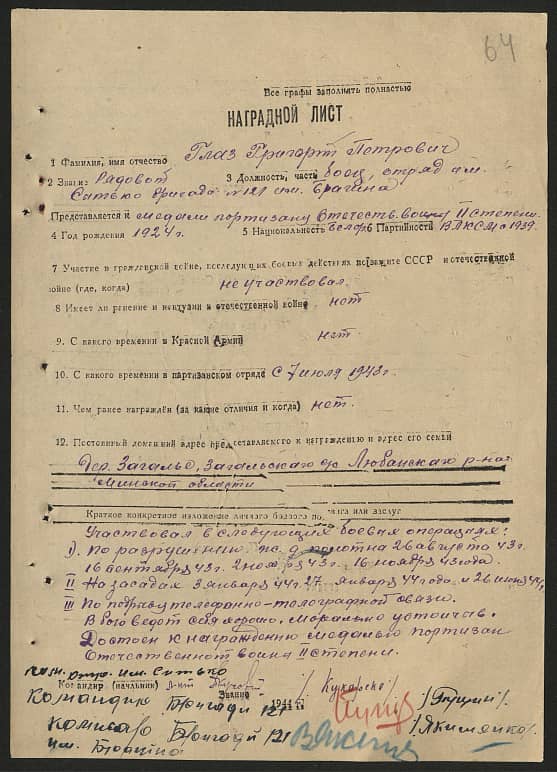 64
Все графы заполнять полностью
НАГРАДНОЙ ЛИСТ
1 Фамилия, имя отчество Глаз Григорий Петрович
2 Звание Рядовой 3 Должность, часть боец, отряд им.
Ситько бригада №121 им. Брагина
Представляется к медали партизану Отечеств. войны II степени.
4 Год рождения 1924 г. 5 Национальность белор 6 Партийность ВЛКСМ с 1939.
7 Участие в гражданской войне, последующих боевых действиях по защите СССР и отечественной
войне (где, когда) не участвовал.
8 Имеет ли ранение и контузии в отечественной войне нет
9. С какого времени в Красной Армии нет.
10. С какого времени в партизанском отряде с 7 июля 1943 г.
11. Чем ранее награждён (за какие отличия и когда) нет.
12. Постоянный домашний адрес представляемого к награждению и адрес его семьи
Дер. Загалье, Загальского с/с Любанского р-на
Минской области
Краткое конкретное изложение личного боевого подвига или заслуг
Участвовал в следующих боевых операциях:
I). По разрушению ж. д. полотна 26 августа 43 г.
16 сентября 43 г. 2 ноября 43 г. 16 ноября 43 года.
II На засадах 3 января 44 г. 27 января 44 года и 26 июня 44 г.
III По подрыву телефонно-телеграфной связи.
В бою ведет себя хорошо. Морально устойчив.
Достоин к награждению медалью партизан
Отечественной войны II степени.
Ком. отр. им. Ситько
Командир (начальник)
Звание
1944 г.
Командир Бригады 121
Комиссар Бригады 121 /Якименко/.
им. Брагина